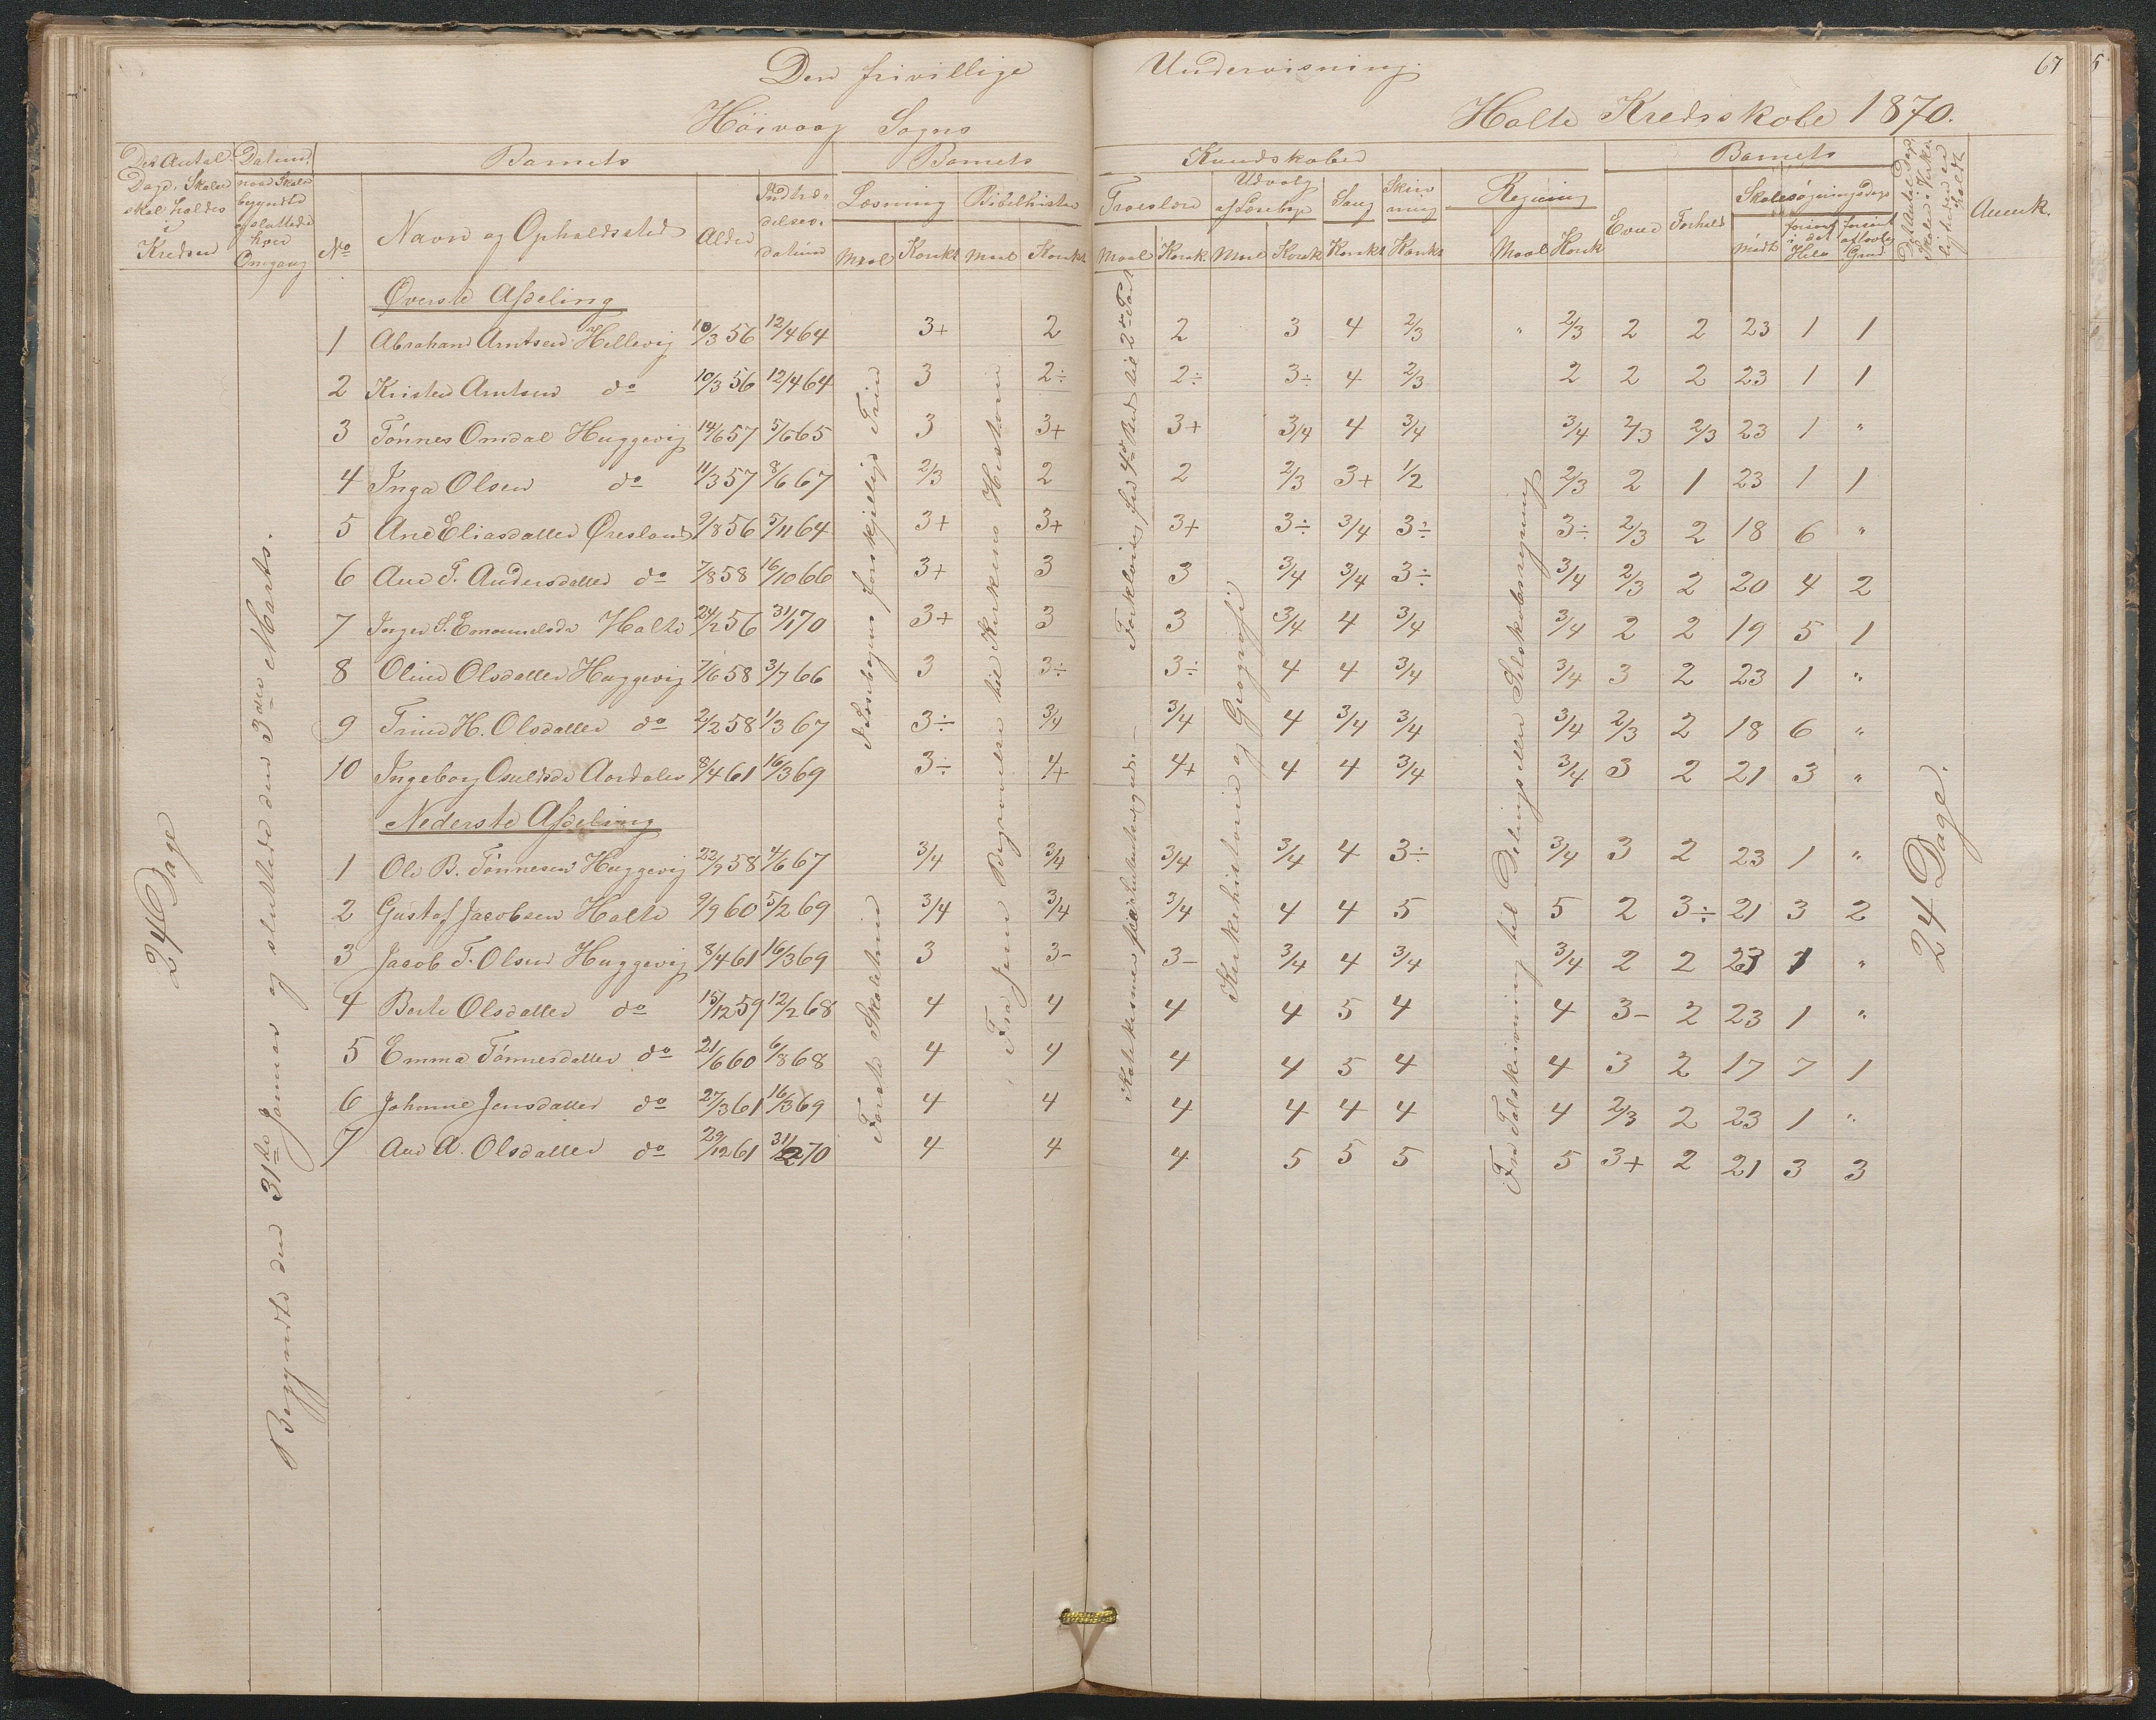 Den frivillige Undervisning. 67
Höivaag Sogns Halte Kredsskole 1870.
Det Antal Dage, Skolen skal holdes i Kredsen
Datum, naar Skolen begyndte og sluttede hver Omgang
Barnets
No
Navn og Opholdssted
Alder
Indtrædelses-datum
Barnets Kundskaber
Læsning Bibelhistorie Troeslære Udvalg af Læsebogen Sang Skrivning Regning
Maal Karakt. Maal Karakt. Maal Karak. Maal Karak Karakt Karakt. Maal Karak
Barnets
Evne Forhold
Skolesøgningsdage
mødt forsømt i det Hele forsømt af lovlig Grund
Det Antal Dage Skolen i Virkeligheden er holdt
Anmærk.
24 Dage
Begyndte den 31te Januar og sluttede den 3die Marts.
Øverste Afdeling
1 Abraham Arntsen Hellevig 10/3 56 12/4 64 3+ 2 2 3 4 2/3 " 2/3 2 2 23 1 1
2 Kristen Arntsen do 10/3 56 12/4 64 3 2÷ 2÷ 3÷ 4 2/3 2 2 2 23 1 1
3 Tönnes Omdal Huggevig 14/6 57 5/6 65 3 3+ 3+ 3/4 4 3/4 3/4 2/3 2/3 23 1 "
4 Inga Olsen do 11/3 57 8/6 67 2/3 2 2 2/3 3+ 1/2 2/3 2 1 23 1 1
5 Ane Eliasdatter Øresland 9/8 56 5/11 64 3+ 3+ 3+ 3÷ 3/4 3÷ 3÷ 2/3 2 18 6 "
6 Ane T. Andersdatter do 7/8 58 16/10 66 3+ 3 3 3/4 3/4 3÷ 3/4 2/3 2 20 4 2
7 Inger S. Emanuelsdr Halte 24/2 56 31/1 70 3+ 3 3 3/4 4 3/4 3/4 2 2 19 5 1
8 Oline Olsdatter Huggevig 7/6 58 3/7 66 3 3÷ 3÷ 4 4 3/4 3/4 3 2 23 1 "
9 Trine H. Olsdatter do 2/2 58 1/3 67 3÷ 3/4 3/4 4 3/4 3/4 3/4 2/3 2 18 6 "
10 Ingeborg Osuldsdr Aardalen 8/4 61 16/3 69 3÷ 4+ 4+ 4 4 3/4 3/4 3 2 21 3 "
Nederste Afdeling
1 Ole B. Tönnesen Huggevig 22/9 58 4/6 67 3/4 3/4 3/4 3/4 4 3÷ 3/4 3 2 23 1 "
2 Gustaf Jacobsen Halte 9/9 60 5/2 69 3/4 3/4 3/4 4 4 5 5 2 3÷ 21 3 2
3 Jacob T. Olsen Huggevig 8/4 61 16/3 69 3 3- 3- 3/4 4 3/4 3/4 2 2 23 1 "
4 Berte Olsdatter do 15/12 59 12/2 68 4 4 4 4 5 4 4 3- 2 23 1 "
5 Emma Tönnesdatter do 21/6 60 6/8 68 4 4 4 4 5 4 4 3 2 17 7 1
6 Johanne Jensdatter do 27/3 61 16/3 69 4 4 4 4 4 4 4 2/3 2 23 1 "
7 Ane A. Olsdatter do 29/12 61 31/1 70 4 4 4 5 5 5 5 3+ 2 21 3 3
Første Skoletrin
I Læsebogens forskjellige Trin
Fra Jesu Begravelse til Kirkens Historie
Forklaring fra 4de Bud til 2den Part
Kirkehistorie og Geografi
Fra Talskrivning til Delings eller Selskabsregning
24 Dage.